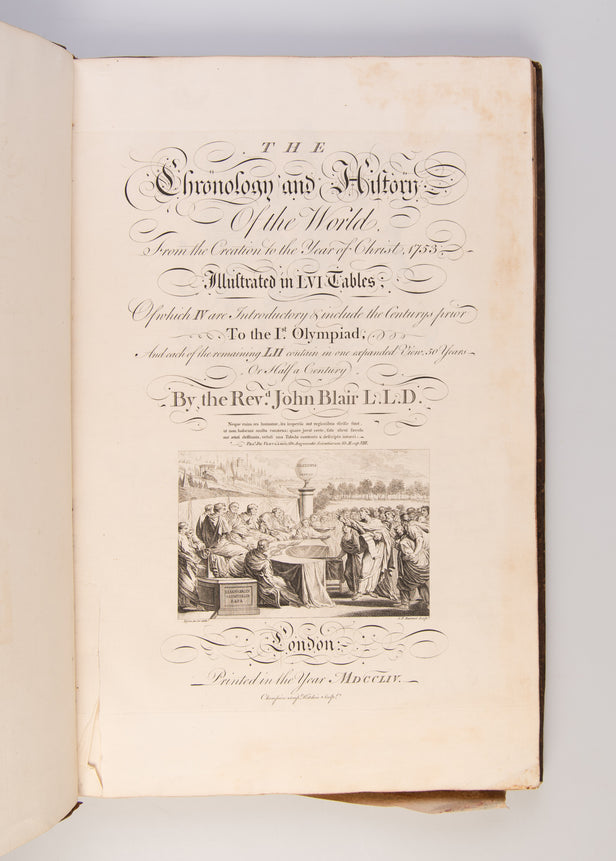 THE
Chronology and History
Of the World,
From the Creation to the Year of Christ, 1753.
Illustrated in LVI Tables;
Of which IV are Introductory & include the Centurys prior
To the I.st Olympiad;
And each of the remaining LII contain in one expanded View, 50 Years
Or Half a Century
By the Rev.d John Blair L.L.D.
London:
Printed in the Year MDCCLIV.